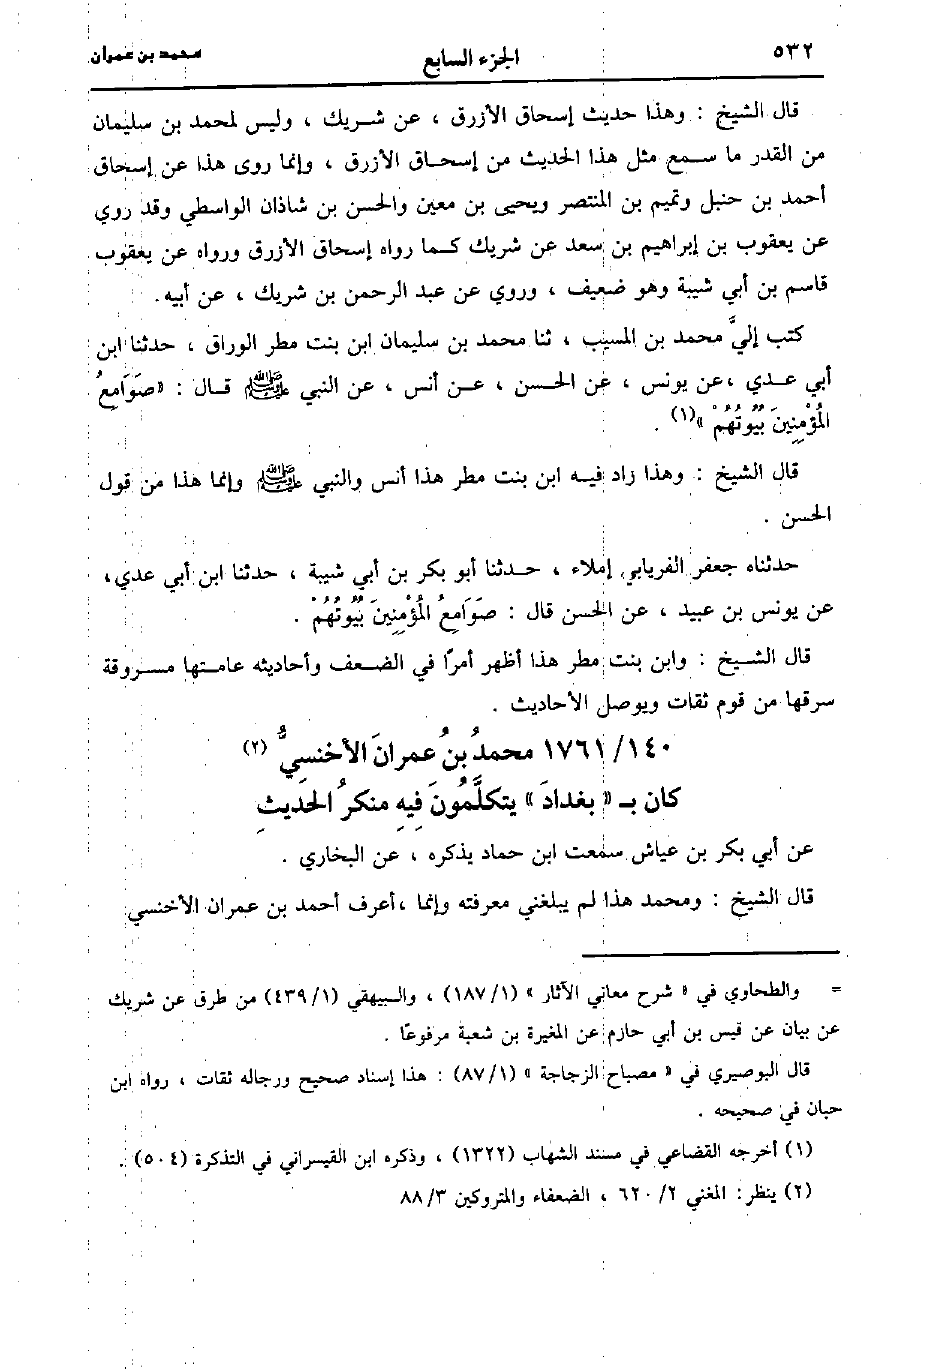 ٥٣٢ الجزء السابع محمد بن عمران
قال الشيخ : وهذا حديث إسحاق الأزرق ، عن شريك ، وليس لمحمد بن سليمان
من القدر ما سمع مثل هذا الحديث من إسحاق الأزرق ، وإنما روى هذا عن إسحاق
أحمد بن حنبل وتميم بن المنتصر ويحيى بن معين والحسن بن شاذان الواسطي وقد روي
عن يعقوب بن إبراهيم بن سعد عن شريك كما رواه إسحاق الأزرق ورواه عن يعقوب
قاسم بن أبي شيبة وهو ضعيف ، وروي عن عبد الرحمن بن شريك ، عن أبيه .
كتب إليَّ محمد بن المسيب ، ثنا محمد بن سليمان ابن بنت مطر الوراق ، حدثنا ابن
أبي عدي ، عن يونس ، عن الحسن ، عن أنس ، عن النبي ﷺ قال : « صَوَامِعُ
المُؤْمِنِينَ بُيُوتُهُمْ » (١) .
قال الشيخ : وهذا زاد فيه ابن بنت مطر هذا أنس والنبي ﷺ وإنما هذا من قول
الحسن .
حدثناه جعفر الفريابي إملاء ، حدثنا أبو بكر بن أبي شيبة ، حدثنا ابن أبي عدي ،
عن يونس بن عبيد ، عن الحسن قال : صَوَامِعُ المُؤْمِنِينَ بُيُوتُهُمْ .
قال الشيخ : وابن بنت مطر هذا أظهر أمرًا في الضعف وأحاديثه عامتها مسروقة
سرقها من قوم ثقات ويوصل الأحاديث .
١٧٦١/١٤٠ محمدُ بنُ عمرانَ الأخنسِيُّ (٢)
كان بـ « بغدادَ » يتكلَّمُونَ فِيهِ منكرُ الحديثِ
عن أبي بكر بن عياش سمعت ابن حماد يذكره ، عن البخاري .
قال الشيخ : ومحمد هذا لم يبلغني معرفته وإنما ، أعرف أحمد بن عمران الأخنسي
= والطحاوي في « شرح معاني الآثار » (١/ ١٨٧) ، والبيهقي (١/ ٤٣٩) من طرق عن شريك
عن بيان عن قيس بن أبي حازم عن المغيرة بن شعبة مرفوعًا .
قال البوصيري في « مصباح الزجاجة » (١/ ٨٧) : هذا إسناد صحيح ورجاله ثقات ، رواه ابن
حبان في صحيحه .
(١) أخرجه القضاعي في مسند الشهاب (١٣٢٢) ، وذكره ابن القيسراني في التذكرة (٥٠٤) .
(٢) ينظر : المغني ٢/ ٦٢٠ ، الضعفاء والمتروكين ٣/ ٨٨